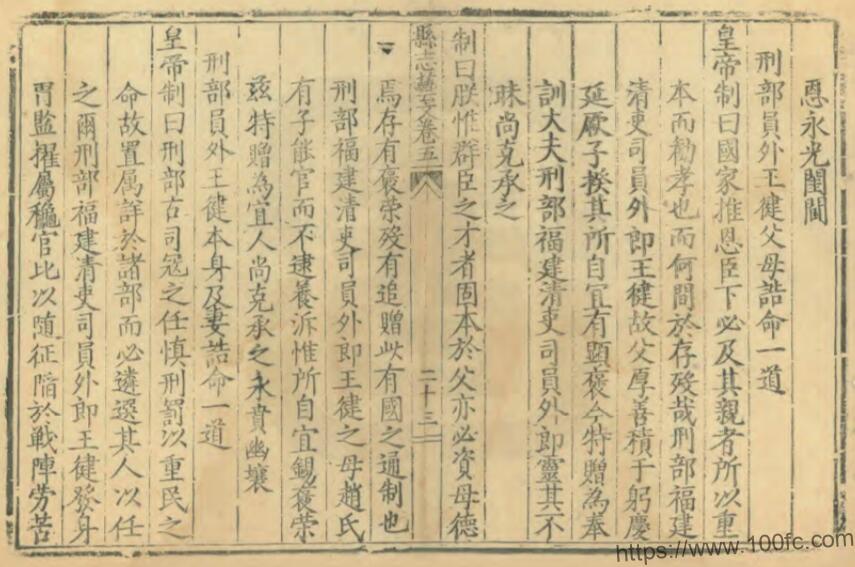 恩永光閨閫
刑部員外王健父母誥命一道
皇帝制曰國家推恩臣下必及其親者所以重
本而勸孝也而何間於存殁哉刑部福建
清吏司員外郎王健故父厚善積于躬慶
延厥子揆其所自宜有顯褒今特贈為奉
訓大夫刑部福建清吏司員外郎靈其不
昧尚克承之
制曰朕惟群臣之才者固本於父亦必資母德
縣志藝文卷五
二十三
焉存有褒榮殁有追贈此有國之通制也
刑部福建清吏司員外郎王健之母趙氏
有子能官而不逮養泝惟所自宜錫褒榮
茲特贈為宜人尚克承之永賁幽壤
刑部員外王健本身及妻誥命一道
皇帝制曰刑部古司冦之任慎刑罰以重民之
命故置属詳於諸部而必遴選其人以任
之爾刑部福建清吏司員外郎王健發身
胄監擢屬秋官比以随征陷於戰陣劳苦
https://www.100fc.com